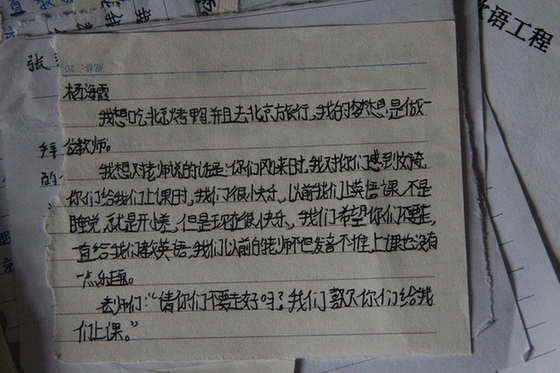 语工程
张
杨海霞
我想吃北京烤鸭,并且去北京旅行。我的梦想是做一
名教师。
我想对老师说的话是:你们刚来时,我对你们感到好奇,
你们给我们上课时,我们很快乐。以前我们上英语课,不是
睡觉,就是开小差,但是现在很快乐。我们希望你们不要走,
直给我们教英语。我们以前的老师不但发音不准,上课也没有
一点乐趣。
老师们:“请你们不要走好吗?我们喜欢你们给我
们上课。”